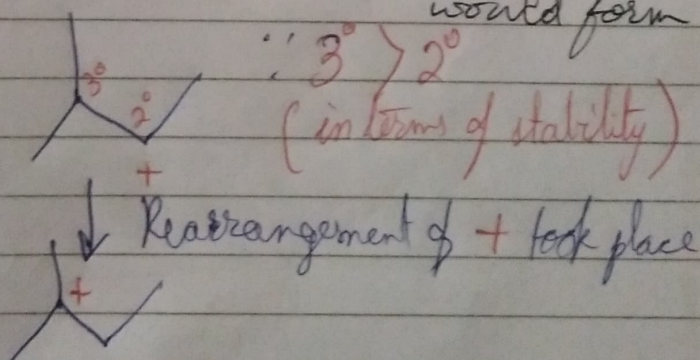 would form
3°
∵ 3° > 2°
2°
(in terms of stability)
+
Rearrangement of + took place
+